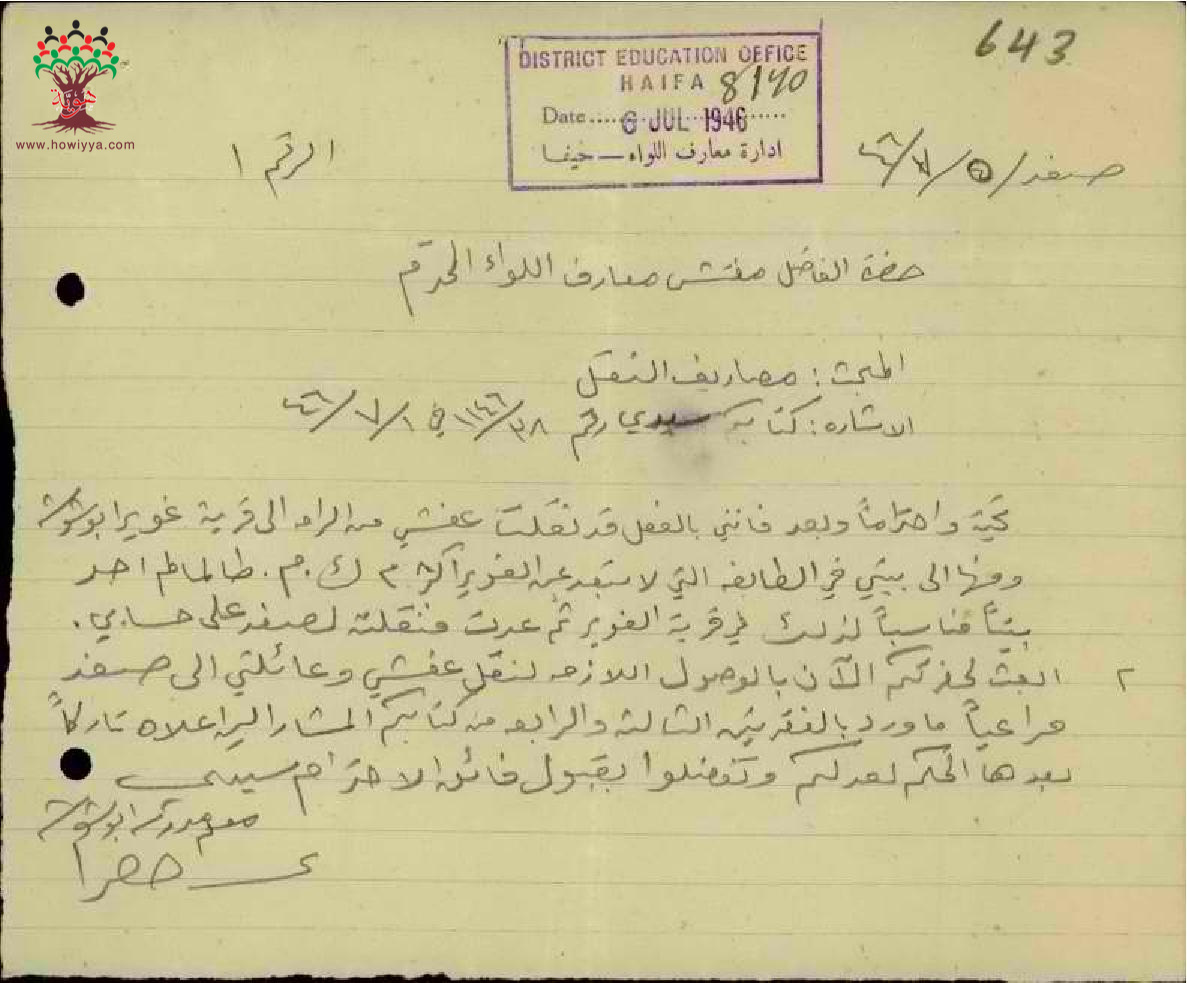 643
DISTRICT EDUCATION OFFICE
HAIFA 8/40
Date..... 6 JUL 1946......
ادارة معارف اللواء — حيفا
هوية
www.howiyya.com
صفد / ٥ / ٧ / ٤٦
الرقم ١
حضرة الفاضل مفتش معارف اللواء المحترم
المبحث : مصاريف النقل
الاشاره : كتابكم سيدي رقم ١١٤٦/٣٨ في ١ / ٧ / ٤٦
تحية واحتراماً وبعد فانني بالفعل قد نقلت عفشي من الرامه الى قرية غوير ابو شوشة
ومنها الى بيتي في الطابغه التي لا تبتعد عن الغوير اكثر ٣ ك . م . طالما لم اجد
بيتاً مناسباً لذلك في قرية الغوير ثم عدت فنقلته لصفد على حسابي .
٢ ابعث لحضرتكم الآن بالوصول اللازمه لنقل عفشي وعائلتي الى صفد
مراعياً ما ورد بالفقرتين الثالثة والرابعه من كتابكم المشار اليه اعلاه تاركاً
بعدها الحكم لعدلكم وتفضلوا بقبول فائق الاحترام سيدي
معلم مدرسة ابو شوشة